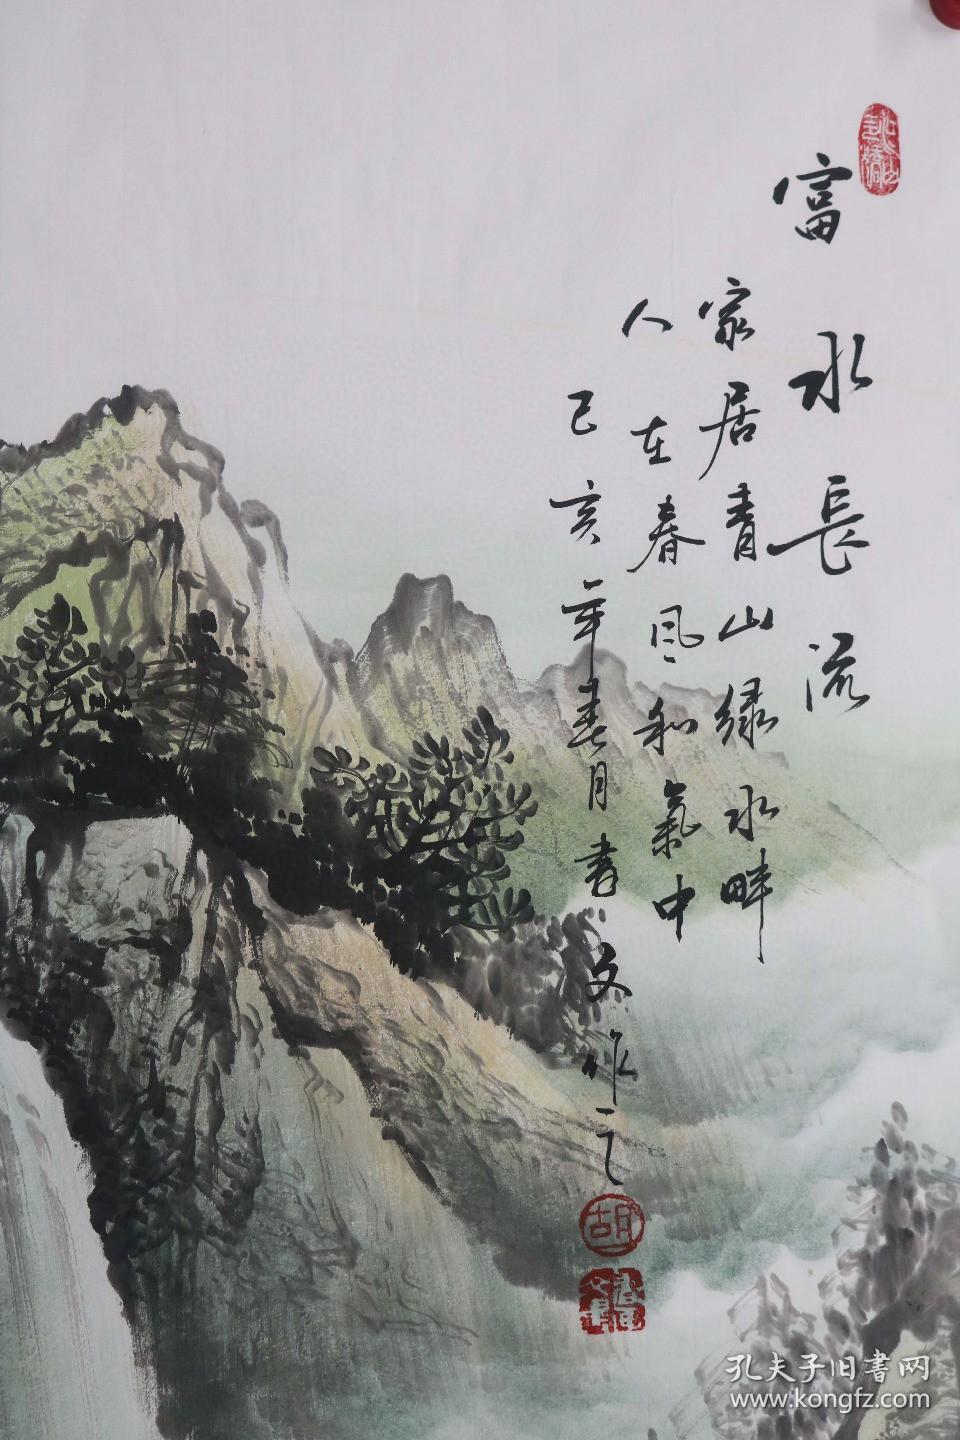 富水長流
家居青山绿水畔
人在春风和氣中
己亥年春月书文作之
胡
孔夫子旧書网
www.kongfz.com